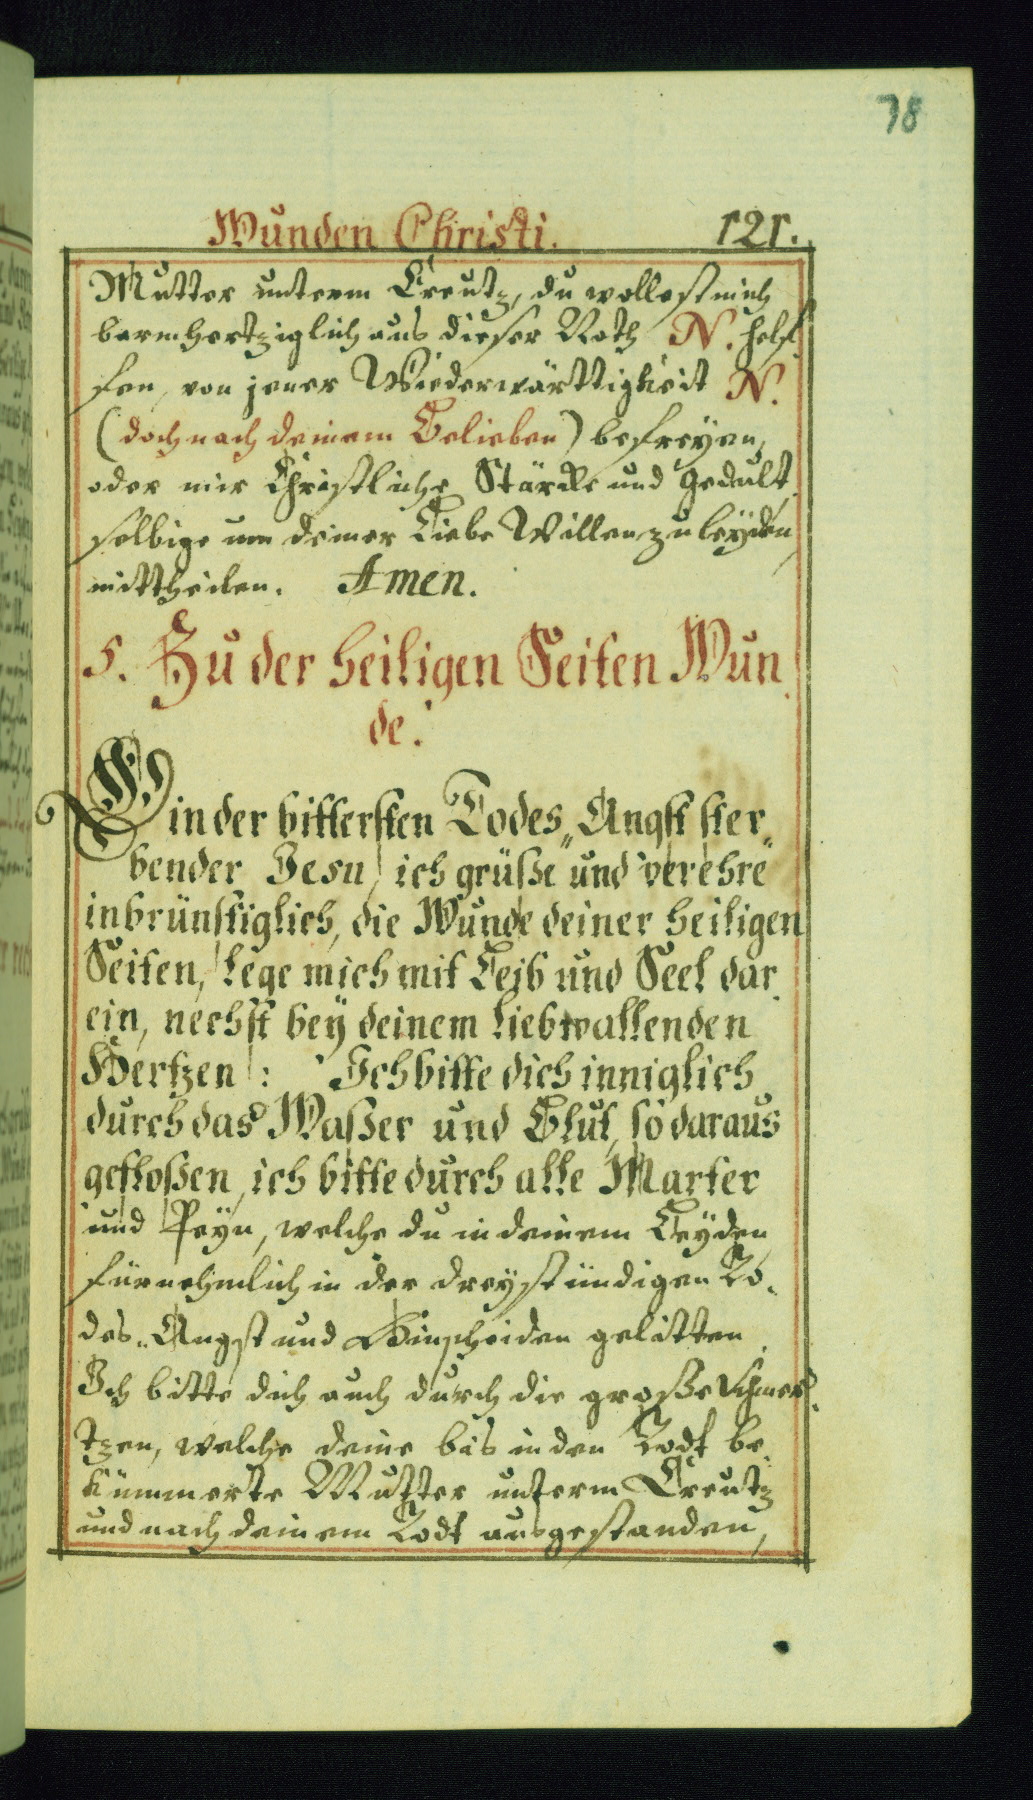 78
Wunden Christi. 121.
Mutter unterm Creutz, du wollest mich
barmhertziglich aus dieser Noth N. helf„
fen, von jener Wiederwärttigkeit N.
(doch nach deinem Belieben) befreyen,
oder mir Christliche Stärcke und Gedult,
selbige um deiner Liebe Willen zu leyden,
mittheilen. Amen.
5. Zu der heiligen Seiten Wun„
de.
O in der bittersten Todes„Angst ster„
bender Jesu, ich grüße und verehre
inbrünstiglich, die Wunde deiner heiligen
Seiten, lege mich mit Leib und Seel dar„
ein, nechst bey deinem liebwallenden
Hertzen: Ich bitte dich inniglich
durch das Waßer und Blut, so daraus
gefloßen, ich bitte durch alle Marter
und Peyn, welche du in deinem Leyden
fürnehmlich in der dreystündigen To„
des„Angst und Hinscheiden gelitten.
Ich bitte dich auch durch die große Schmer„
tzen, welche deine bis in den Todt be„
kümmerte Mutter unterm Creutz
und nach deinem Todt ausgestanden,